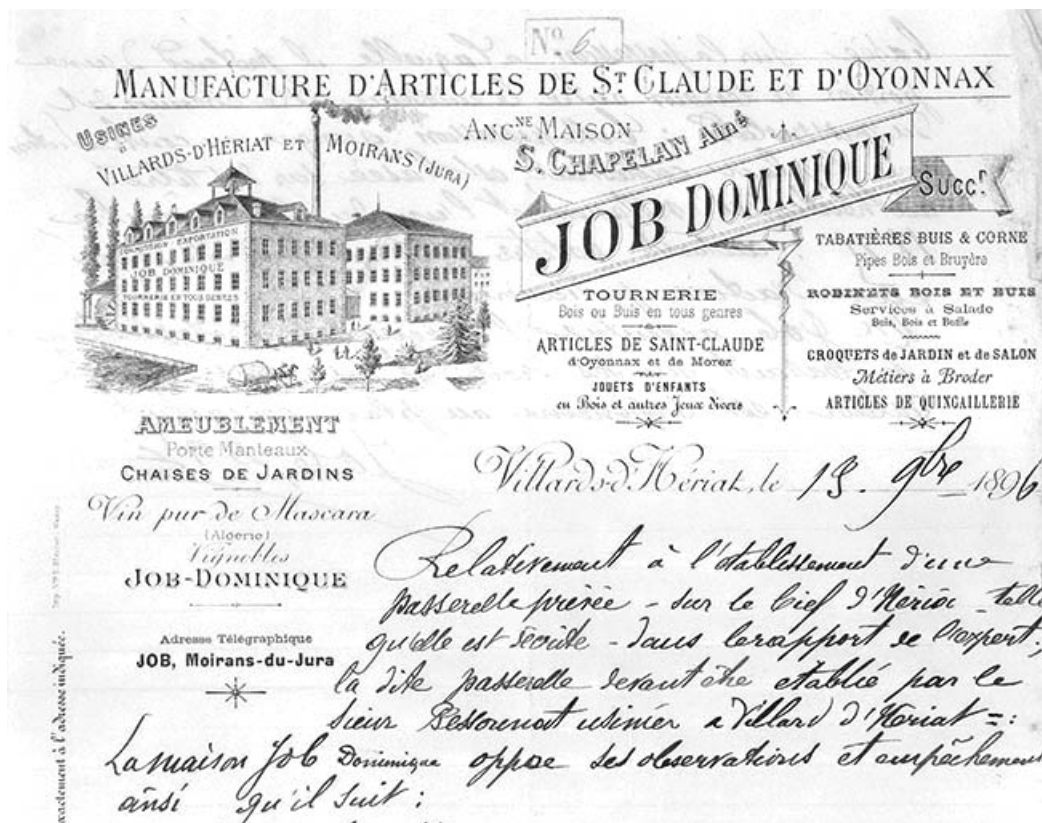 No. 6
MANUFACTURE D'ARTICLES DE ST CLAUDE ET D'OYONNAX
USINES
à
VILLARDS-D'HÉRIAT ET MOIRANS (JURA)
COMMISSION EXPORTATION
JOB DOMINIQUE
TOURNERIE EN TOUS GENRES
ANCNE MAISON
S. CHAPELAN Aîné
JOB DOMINIQUE
Succr
TOURNERIE
Bois ou Buis en tous genres
ARTICLES DE SAINT-CLAUDE
d'Oyonnax et de Morez
JOUETS D'ENFANTS
en Bois et autres Jeux divers
TABATIÈRES BUIS & CORNE
Pipes Bois et Bruyère
ROBINETS BOIS ET BUIS
Services à Salade
Buis, Bois et Buffle
CROQUETS de JARDIN et de SALON
Métiers à Broder
ARTICLES DE QUINCAILLERIE
AMEUBLEMENT
Porte Manteaux
CHAISES DE JARDINS
Vin pur de Mascara
(Algerie)
Vignobles
JOB-DOMINIQUE
Adresse Télégraphique
JOB, Moirans-du-Jura
Villards-d'Hériat, le 13 9bre 1896
Relativement à l'établissement d'une
passerelle privée - sur le bief d'Heriat telle
qu'elle est décrite - dans le rapport de l'expert,
la dite passerelle devant être établie par le
sieur usinier a Villard d'Heriat =:
La maison Job Dominique oppose ses observations et empêchement
ainsi qu'il suit :
exactement à l'adresse indiquée.